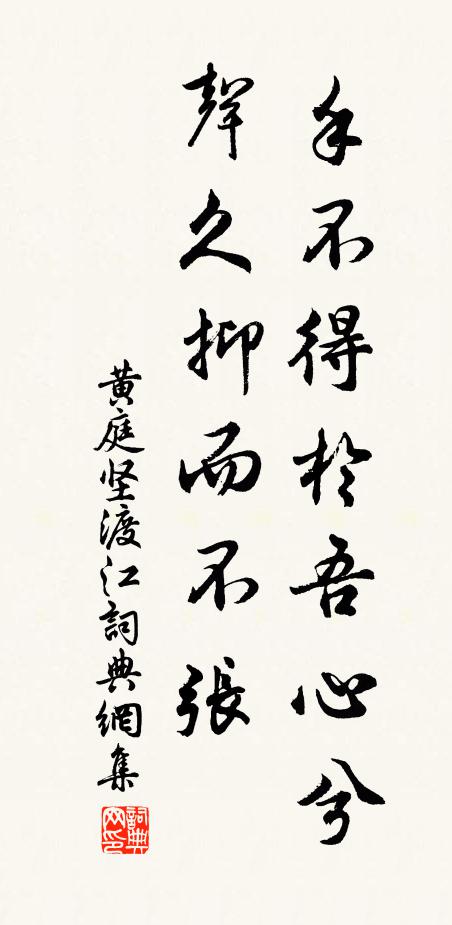 手不得於吾心兮
聲久抑而不張
黄庭坚渡江詞典網集
詞典网印